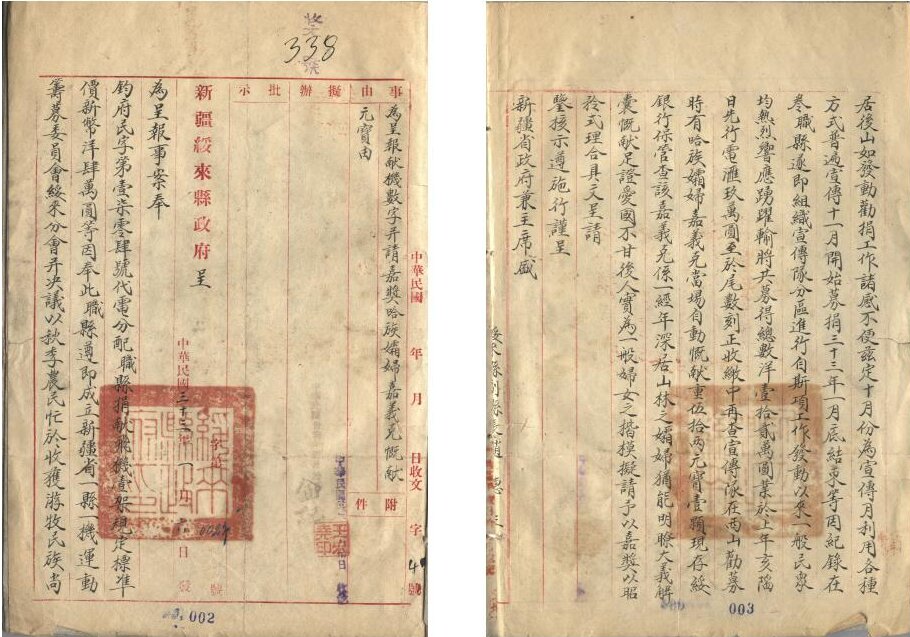 338
事由
擬辦
批示
為呈報献機數字并請嘉獎哈族孀婦嘉義克慨献
元寶由
附件
中華民國 年 月 日收文 字 號
新疆綏來縣政府 呈
中華民國三十三年 月 日
為呈報事案奉
鈞府民字第壹柒零肆號代電分配職縣捐献飛機壹架規定標準
價新幣洋肆萬圓等因奉此職縣遵即成立新疆省一縣一機運動
籌募委員會綏來分會并决議以秋季農民忙於收獲游牧民族尚
002
居後山如發動勸捐工作諸感不便茲定十月份為宣傳月利用各種
方式普遍宣傳十一月開始募捐三十三年一月底結束等因紀錄在
卷職縣遂即組織宣傳隊分區進行自斯項工作發動以來一般民衆
均熱烈響應踴躍輸將共募得總數洋壹拾貳萬圓業於上年亥陷
日先行電滙玖萬圓至於尾數刻正收繳中再查宣傳隊在西山勸募
時有哈族孀婦嘉義克當場自動慨献重伍拾两元寶壹顆現存綏
銀行保管查該嘉義克係一經年深居山林之孀婦猶能明瞭大義解
囊慨献足證愛國不甘後人實為一般婦女之楷模擬請予以嘉獎以昭
矜式理合具文呈請
鑒核示遵施行謹呈
新疆省政府兼主席盛
003